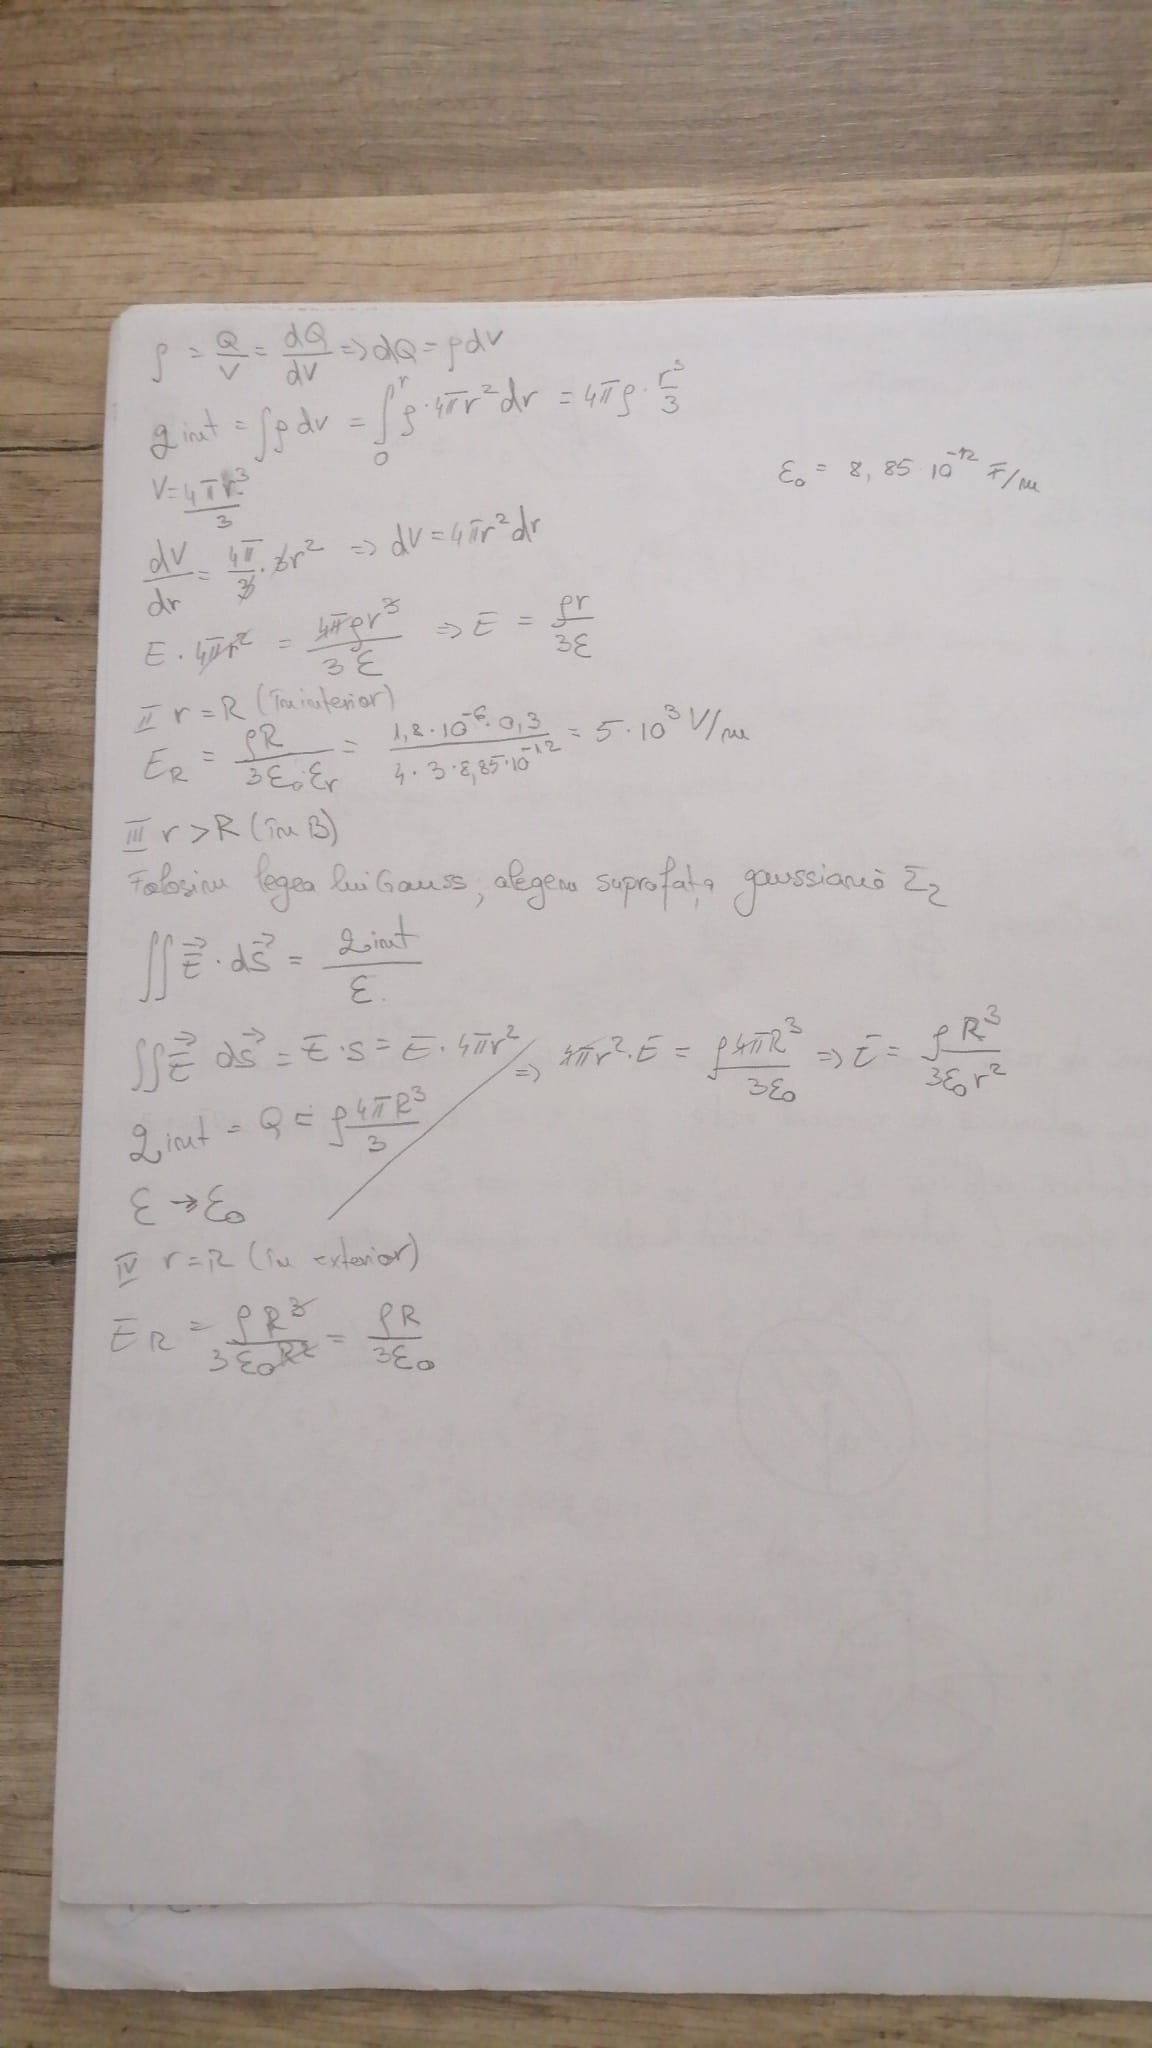 ρ = Q/V = dQ/dV => dQ = ρdV
q int = ∫ρ dv = ∫₀ʳ ρ·4πr²dr = 4πρ · r³/3
V = 4πr³/3
ε₀ = 8,85 · 10⁻¹² F/m
dV/dr = 4π/3 · 3r² => dV = 4πr²dr
E · 4πr² = 4πρr³/3ε => E = ρr/3ε
II r = R (în interior)
E_R = ρR/3ε₀·εr = 1,8·10⁻⁶·0,3/4·3·8,85·10⁻¹² = 5·10³ V/m
III r > R (în B)
Folosim legea lui Gauss, alegem suprafața gaussiană Σ₂
∬E⃗·dS⃗ = q int/ε
∬E⃗ dS⃗ = E·S = E·4πr² => 4πr²·E = ρ4πR³/3ε₀ => E = ρR³/3ε₀r²
q int = Q = ρ4πR³/3
ε → ε₀
IV r = R (în exterior)
E_R = ρR³/3ε₀R² = ρR/3ε₀